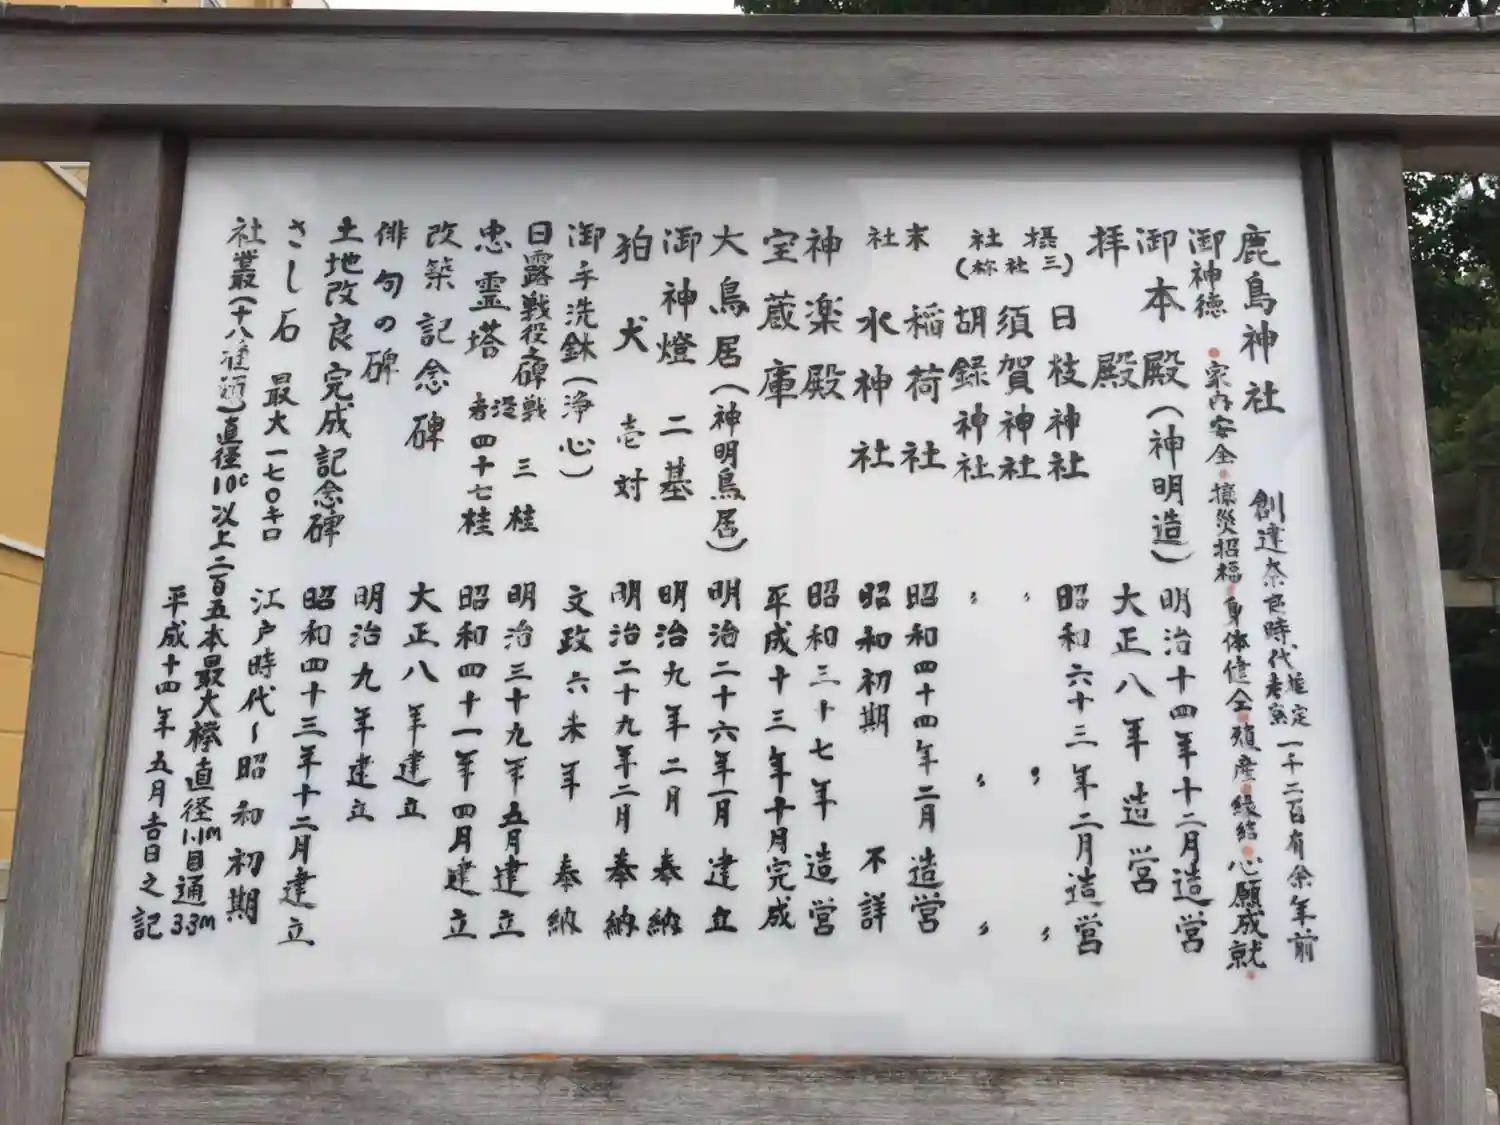 鹿島神社 創建奈良時代推定 一千二百有余年前
御神徳 •家内安全•攘災招福•身体健全•殖産•縁結•心願成就•
御本殿(神明造) 明治十四年十二月造営
拝殿 大正八年造営
摂社(三社祢) 日枝神社 昭和六十三年二月造営
須賀神社 〃 〃 〃
胡録神社 〃 〃 〃
末社 稲荷社 昭和四十四年二月造営
水神社 昭和初期 不詳
神楽殿 昭和三十七年造営
宝蔵庫 平成十三年十月完成
大鳥居(神明鳥居) 明治二十六年一月建立
御神燈 二基 明治九年二月奉納
狛犬 壱対 明治二十九年二月奉納
御手洗鉢(浄心) 文政六未年 奉納
日露戦役之碑 三桂 明治三十九年五月建立
忠霊塔 戦没者四十七桂 昭和四十一年四月建立
改築記念碑 大正八年建立
俳句の碑 明治九年建立
土地改良完成記念碑 昭和四十三年十二月建立
さし石 最大一七〇キロ 江戸時代〜昭和初期
社叢(十八種類)直径10c以上二百五本最大欅直径1.1m目通3.3m
平成十四年五月吉日之記